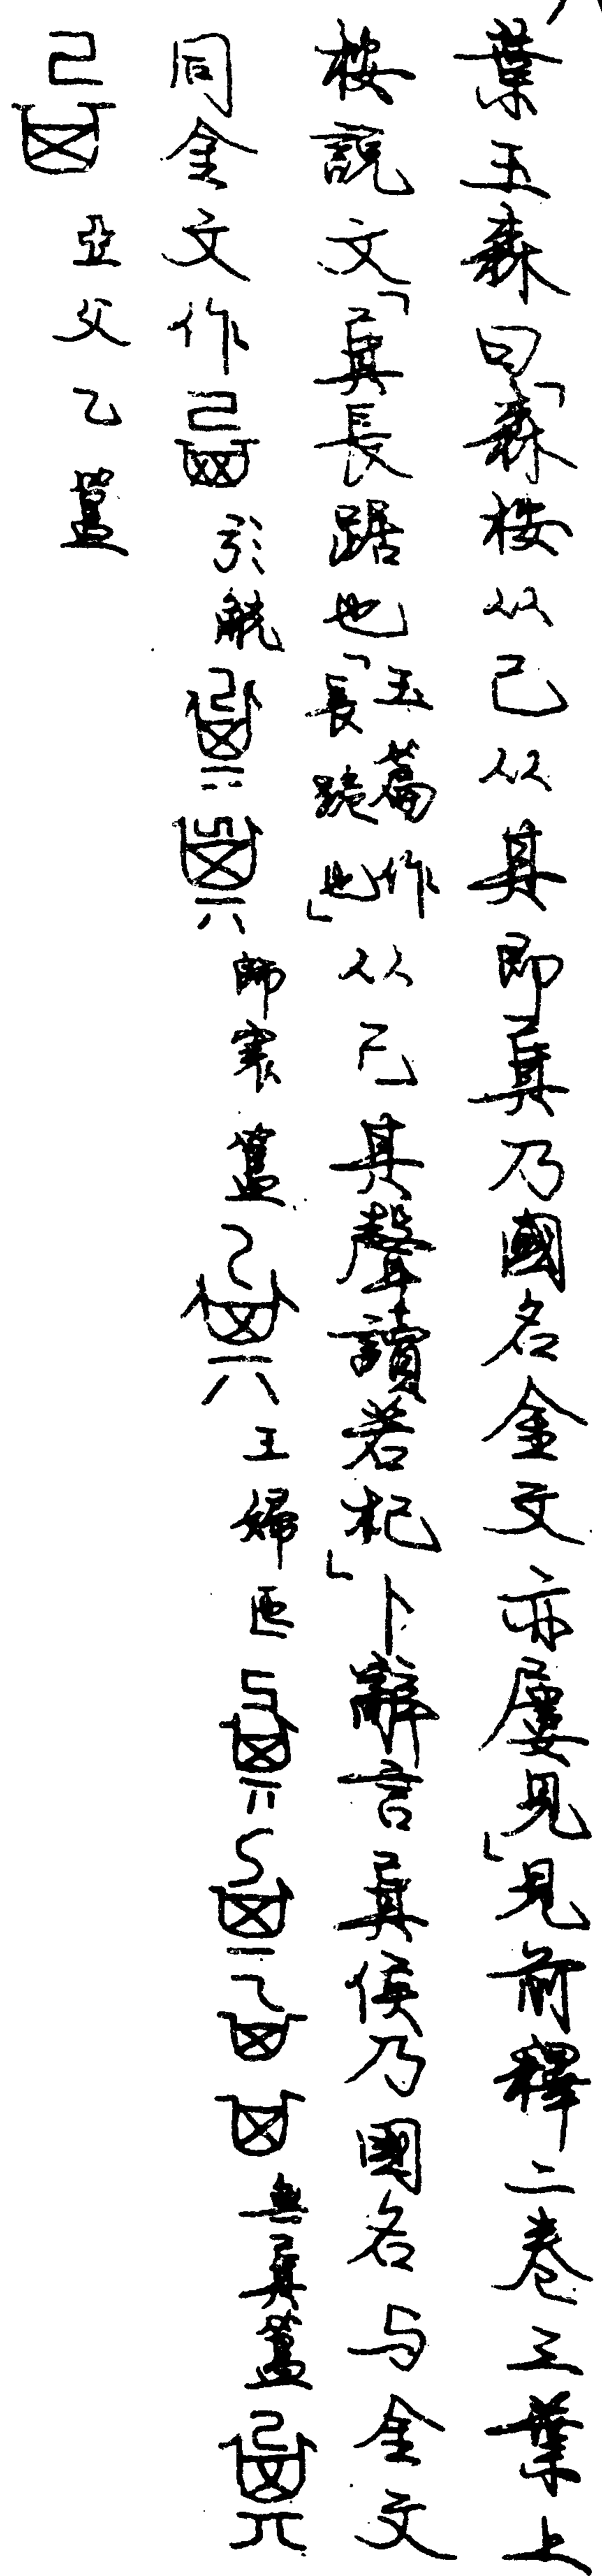 葉玉森曰「森桉从己从其即𢀳乃國名金文亦屢見」見前釋二卷三葉上
桉說文「𢀳長踞也玉篇作「長跪也」从己其聲讀若杞」卜辭言𢀳侯乃國名与金文
同金文作引觥師寰簋王婦匜無𢀳簋
亞父乙簋